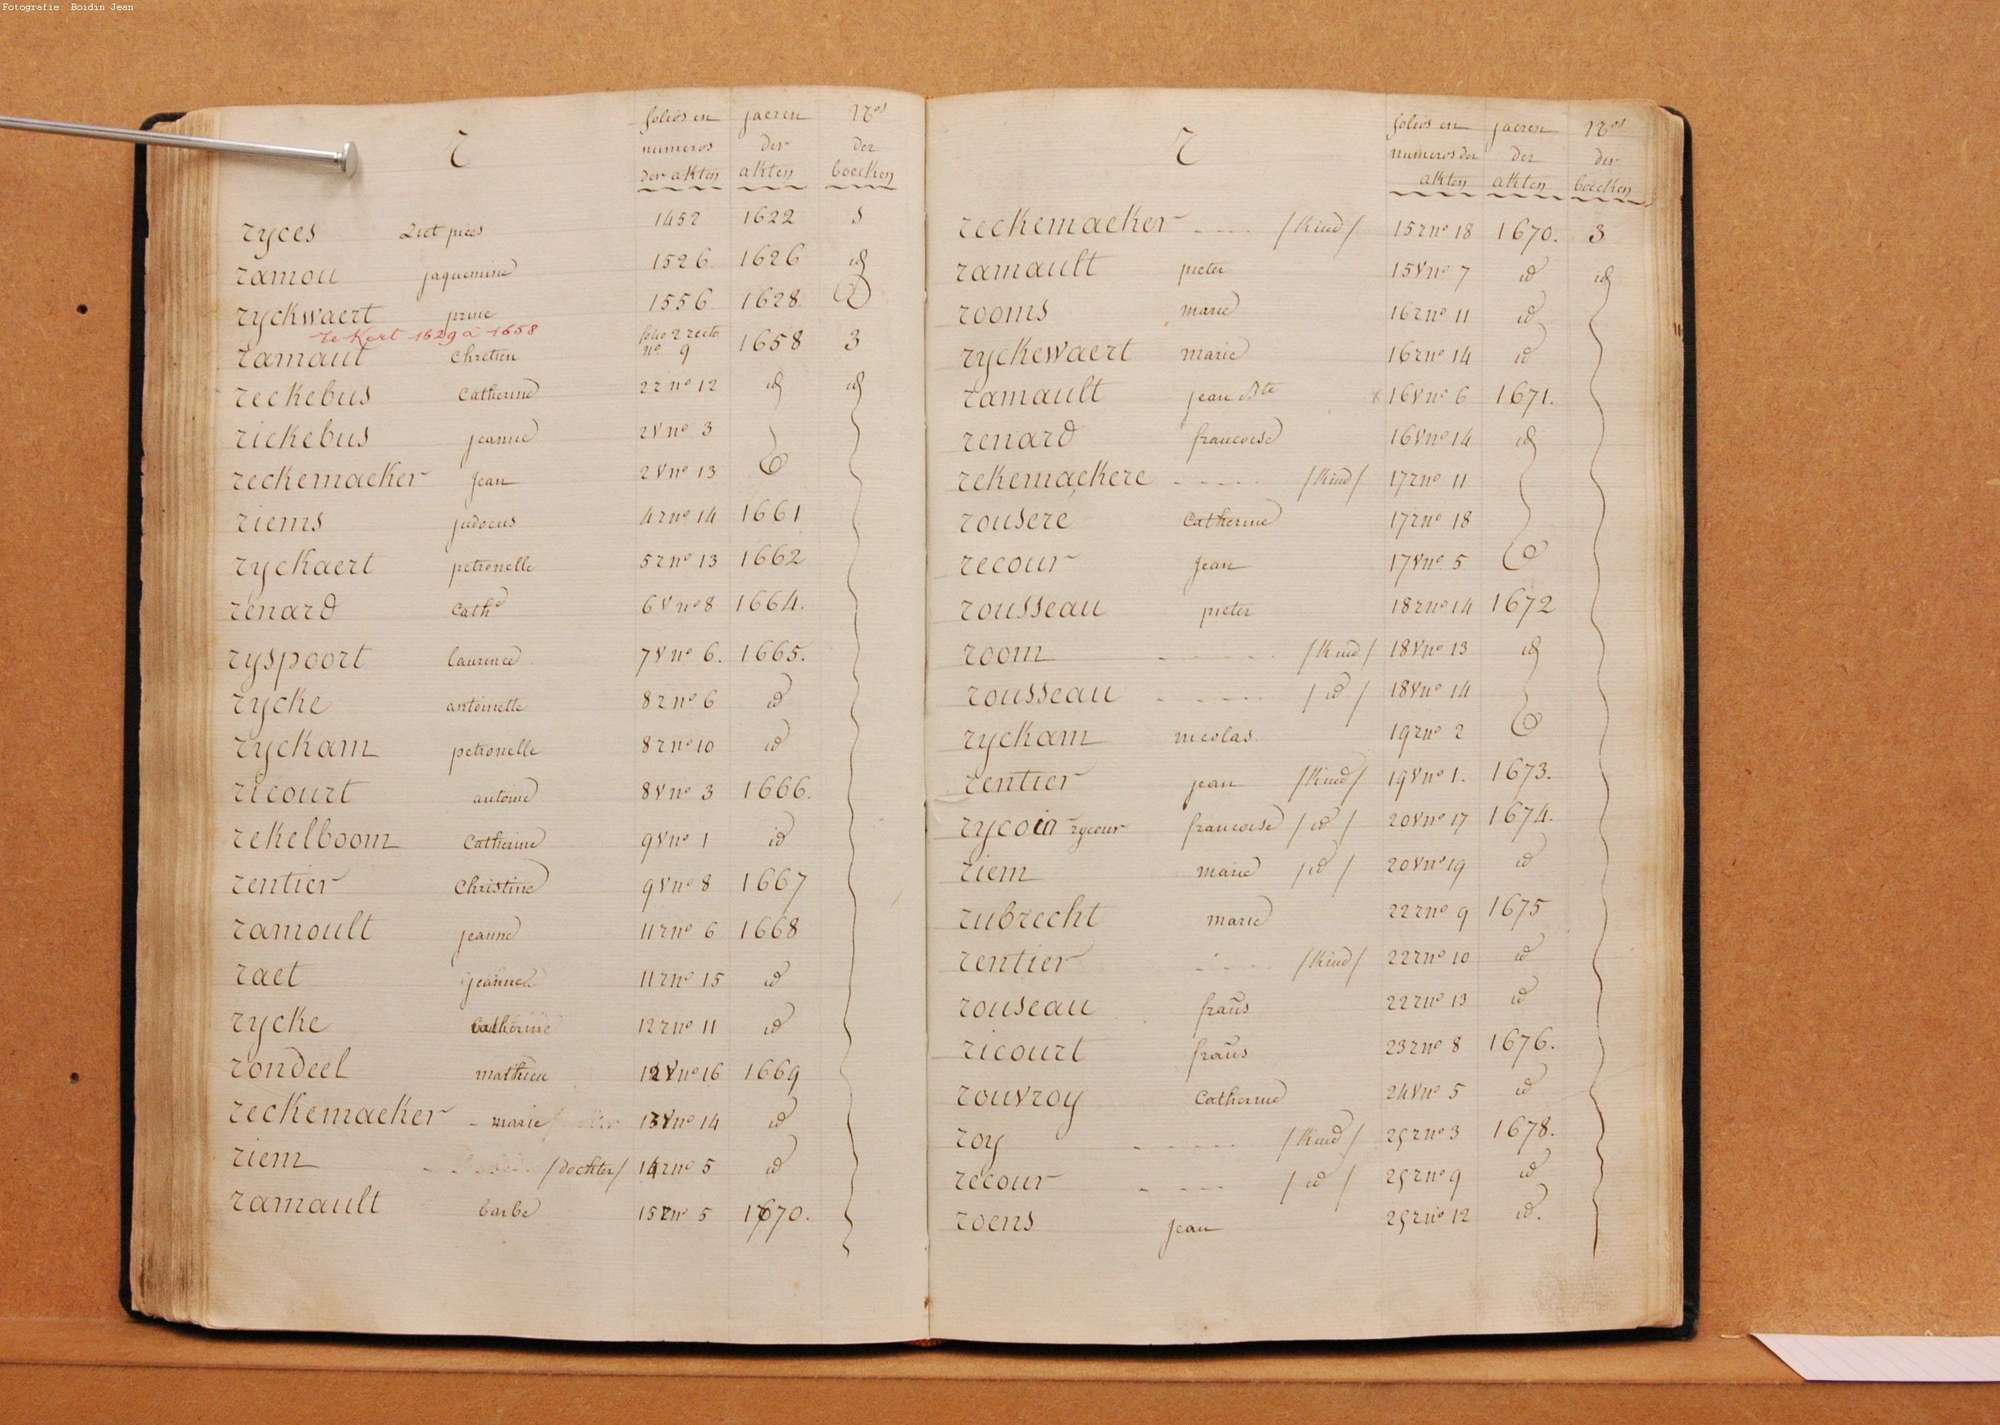 Fotografie Boidin Jean
r
folios en jaeren Nos
numeros der der
der akten akten boecken
ryces 1452 1622
ramou jaquemine 1526 1626 id
ryckwaert 1556 1628
te Kort 1629 a 1658
ramaut Chretien folio 2 recto no 9 1658 3
reckebus Catherine 2 r no 12 id id
rickebus jeanne 2 V no 3
reckemaeker Jean 2 V no 13
riems judocus 4 r no 14 1661
ryckaert petronelle 5 r no 13 1662
renard Cathe 6 V no 8 1664.
ryspoort laurence 7 V no 6. 1665.
rycke antoinette 8 r no 6 id
ryckam petronelle 8 r no 10 id
ricourt antoine 8 V no 3 1666.
rekelboom Catherine 9 V no 1 id
rentier Christine 9 V no 8 1667
ramoult jeanne 11 r no 6 1668
raet jeanne 11 r no 15 id
rycke Catherine 12 r no 11 id
rondeel mathieu 12 V no 16 1669
reckemaeker - marie 13 V no 14 id
riem /dochter/ 14 r no 5 id
ramault barbe 15 r no 5 1670.
r
folios en jaeren Nos
numeros der der der
akten akten boecken
reckemaeker ---- /Kind/ 15 r no 18 1670. 3
ramault pieter 15 V no 7 id id
rooms marie 16 r no 11 id
ryckewaert marie 16 r no 14 id
ramault jean Bte x 16 V no 6 1671.
renard francoise 16 V no 14 id
rekemaekere ----- /Kind/ 17 r no 11
rousere Catherine 17 r no 18
recour Jean 17 V no 5
rousseau pieter 18 r no 14 1672
room ------ /Kind/ 18 V no 13 id
rousseau ----- /id/ 18 V no 14
ryckam nicolas. 19 r no 2
rentier jean /Kind/ 19 V no 1. 1673.
rycoin rycour francoise /id/ 20 V no 17 1674.
riem marie /id/ 20 V no 19 id
rubrecht marie 22 r no 9 1675
rentier ---- /Kind/ 22 r no 10 id
rouseau frans 22 r no 13 id
ricourt frans 23 r no 8 1676.
rouvroy Catherine 24 V no 5 id
roy ----- /Kind/ 25 r no 3 1678.
recour ---- /id/ 25 r no 9 id
roens Jean 25 r no 12 id.